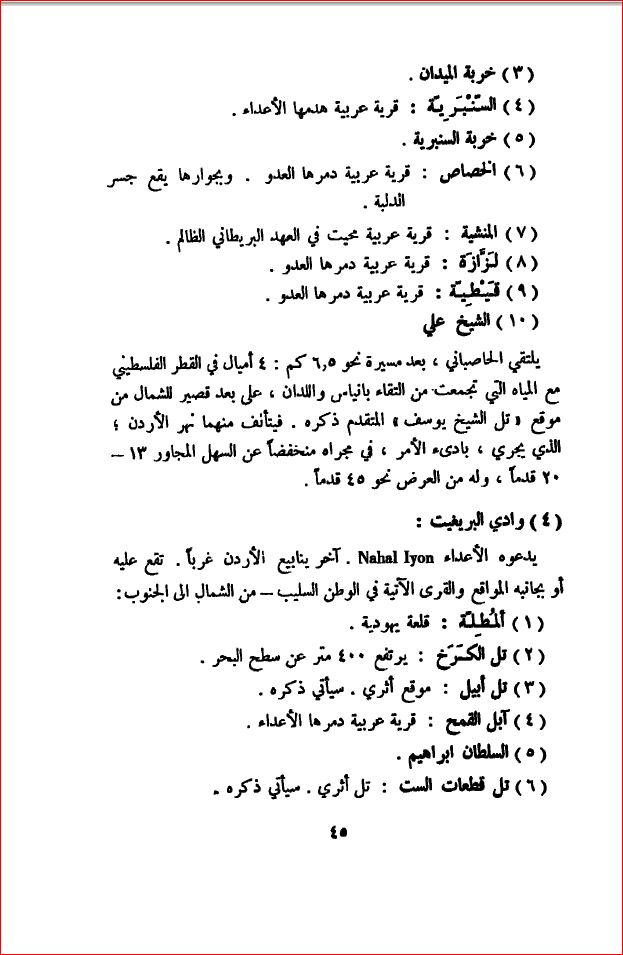 (٣) خربة الميدان .
(٤) السّنْبَرِيّة : قرية عربية هدمها الأعداء .
(٥) خربة السنبرية .
(٦) الخصاص : قرية عربية دمرها العدو . وبجوارها يقع جسر
الدلبة .
(٧) المنشية : قرية عربية محيت في العهد البريطاني الظالم .
(٨) لَزَّازَة : قرية عربية دمرها العدو .
(٩) قَيْطِيّة : قرية عربية دمرها العدو .
(١٠) الشيخ علي
يلتقي الحاصباني ، بعد مسيرة نحو ٦,٥ كم : ٤ أميال في القطر الفلسطيني
مع المياه التي تجمعت من التقاء بانياس واللدان ، على بعد قصير للشمال من
موقع « تل الشيخ يوسف » المتقدم ذكره . فيتأنف منهما نهر الأردن ؛
الذي يجري ، بادىء الأمر ، في مجراه منخفضاً عن السهل المجاور ١٣ –
٢٠ قدماً ، وله من العرض نحو ٤٥ قدماً .
(٤) وادي البريغيت :
يدعوه الأعداء Nahal Iyon . آخر ينابيع الأردن غرباً . تقع عليه
أو بجانبه المواقع والقرى الآتية في الوطن السليب – من الشمال الى الجنوب :
(١) ألمُطِلّة : قلعة يهودية .
(٢) تل الكَرَخ : يرتفع ٤٠٠ متر عن سطح البحر .
(٣) تل أبيل : موقع أثري . سيأتي ذكره .
(٤) آبل القمح : قرية عربية دمرها الأعداء .
(٥) السلطان ابراهيم .
(٦) تل قطعات الست : تل أثري . سيأتي ذكره .
٤٥